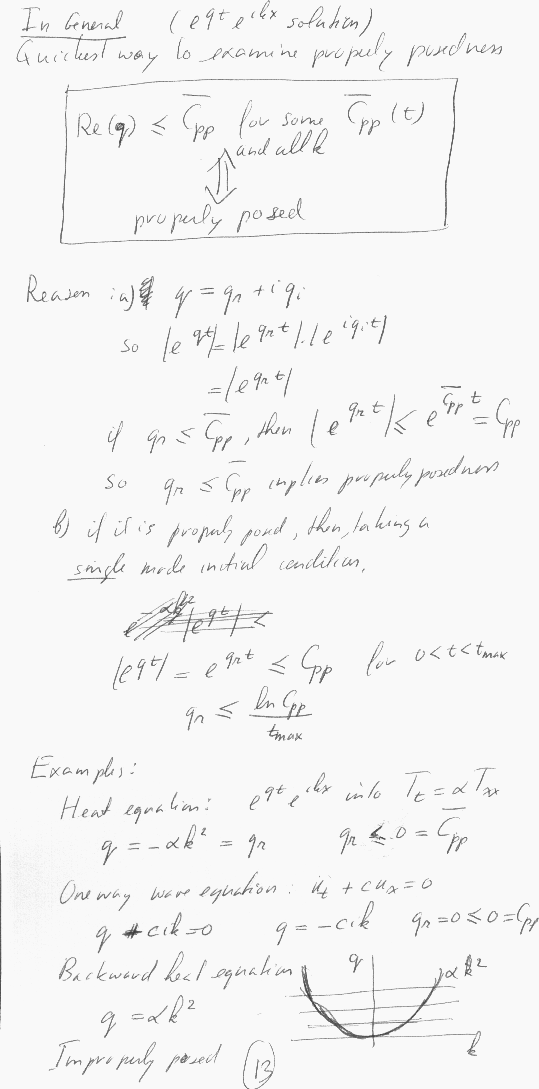 In General (e^{qt} e^{ikx} solution)
Quickest way to examine properly posedness
Re(q) ≤ C̅_pp for some C̅_pp(t)
and all k
⇕
properly posed
Reason: a) q = q_r + i q_i
so |e^{qt}| = |e^{q_r t}|.|e^{i q_i t}|
= |e^{q_r t}|
if q_r ≤ C̅_pp, then |e^{q_r t}| ≤ e^{C̅_pp t} = C_pp
so q_r ≤ C̅_pp implies properly posedness
b) if it is properly posed, then, taking a
single mode initial condition,
|e^{qt}| = e^{q_r t} ≤ C_pp for 0 < t < t_max
q_r ≤ ln C_pp / t_max
Examples:
Heat equation: e^{qt} e^{ikx} into T_t = α T_xx
q = -αk² = q_r q_r ≤ 0 = C̅_pp
One way wave equation: u_t + c u_x = 0
q + cik = 0 q = -cik q_r = 0 ≤ 0 = C_pp
Backward heat equation q αk²
q = αk²
k
Improperly posed 13